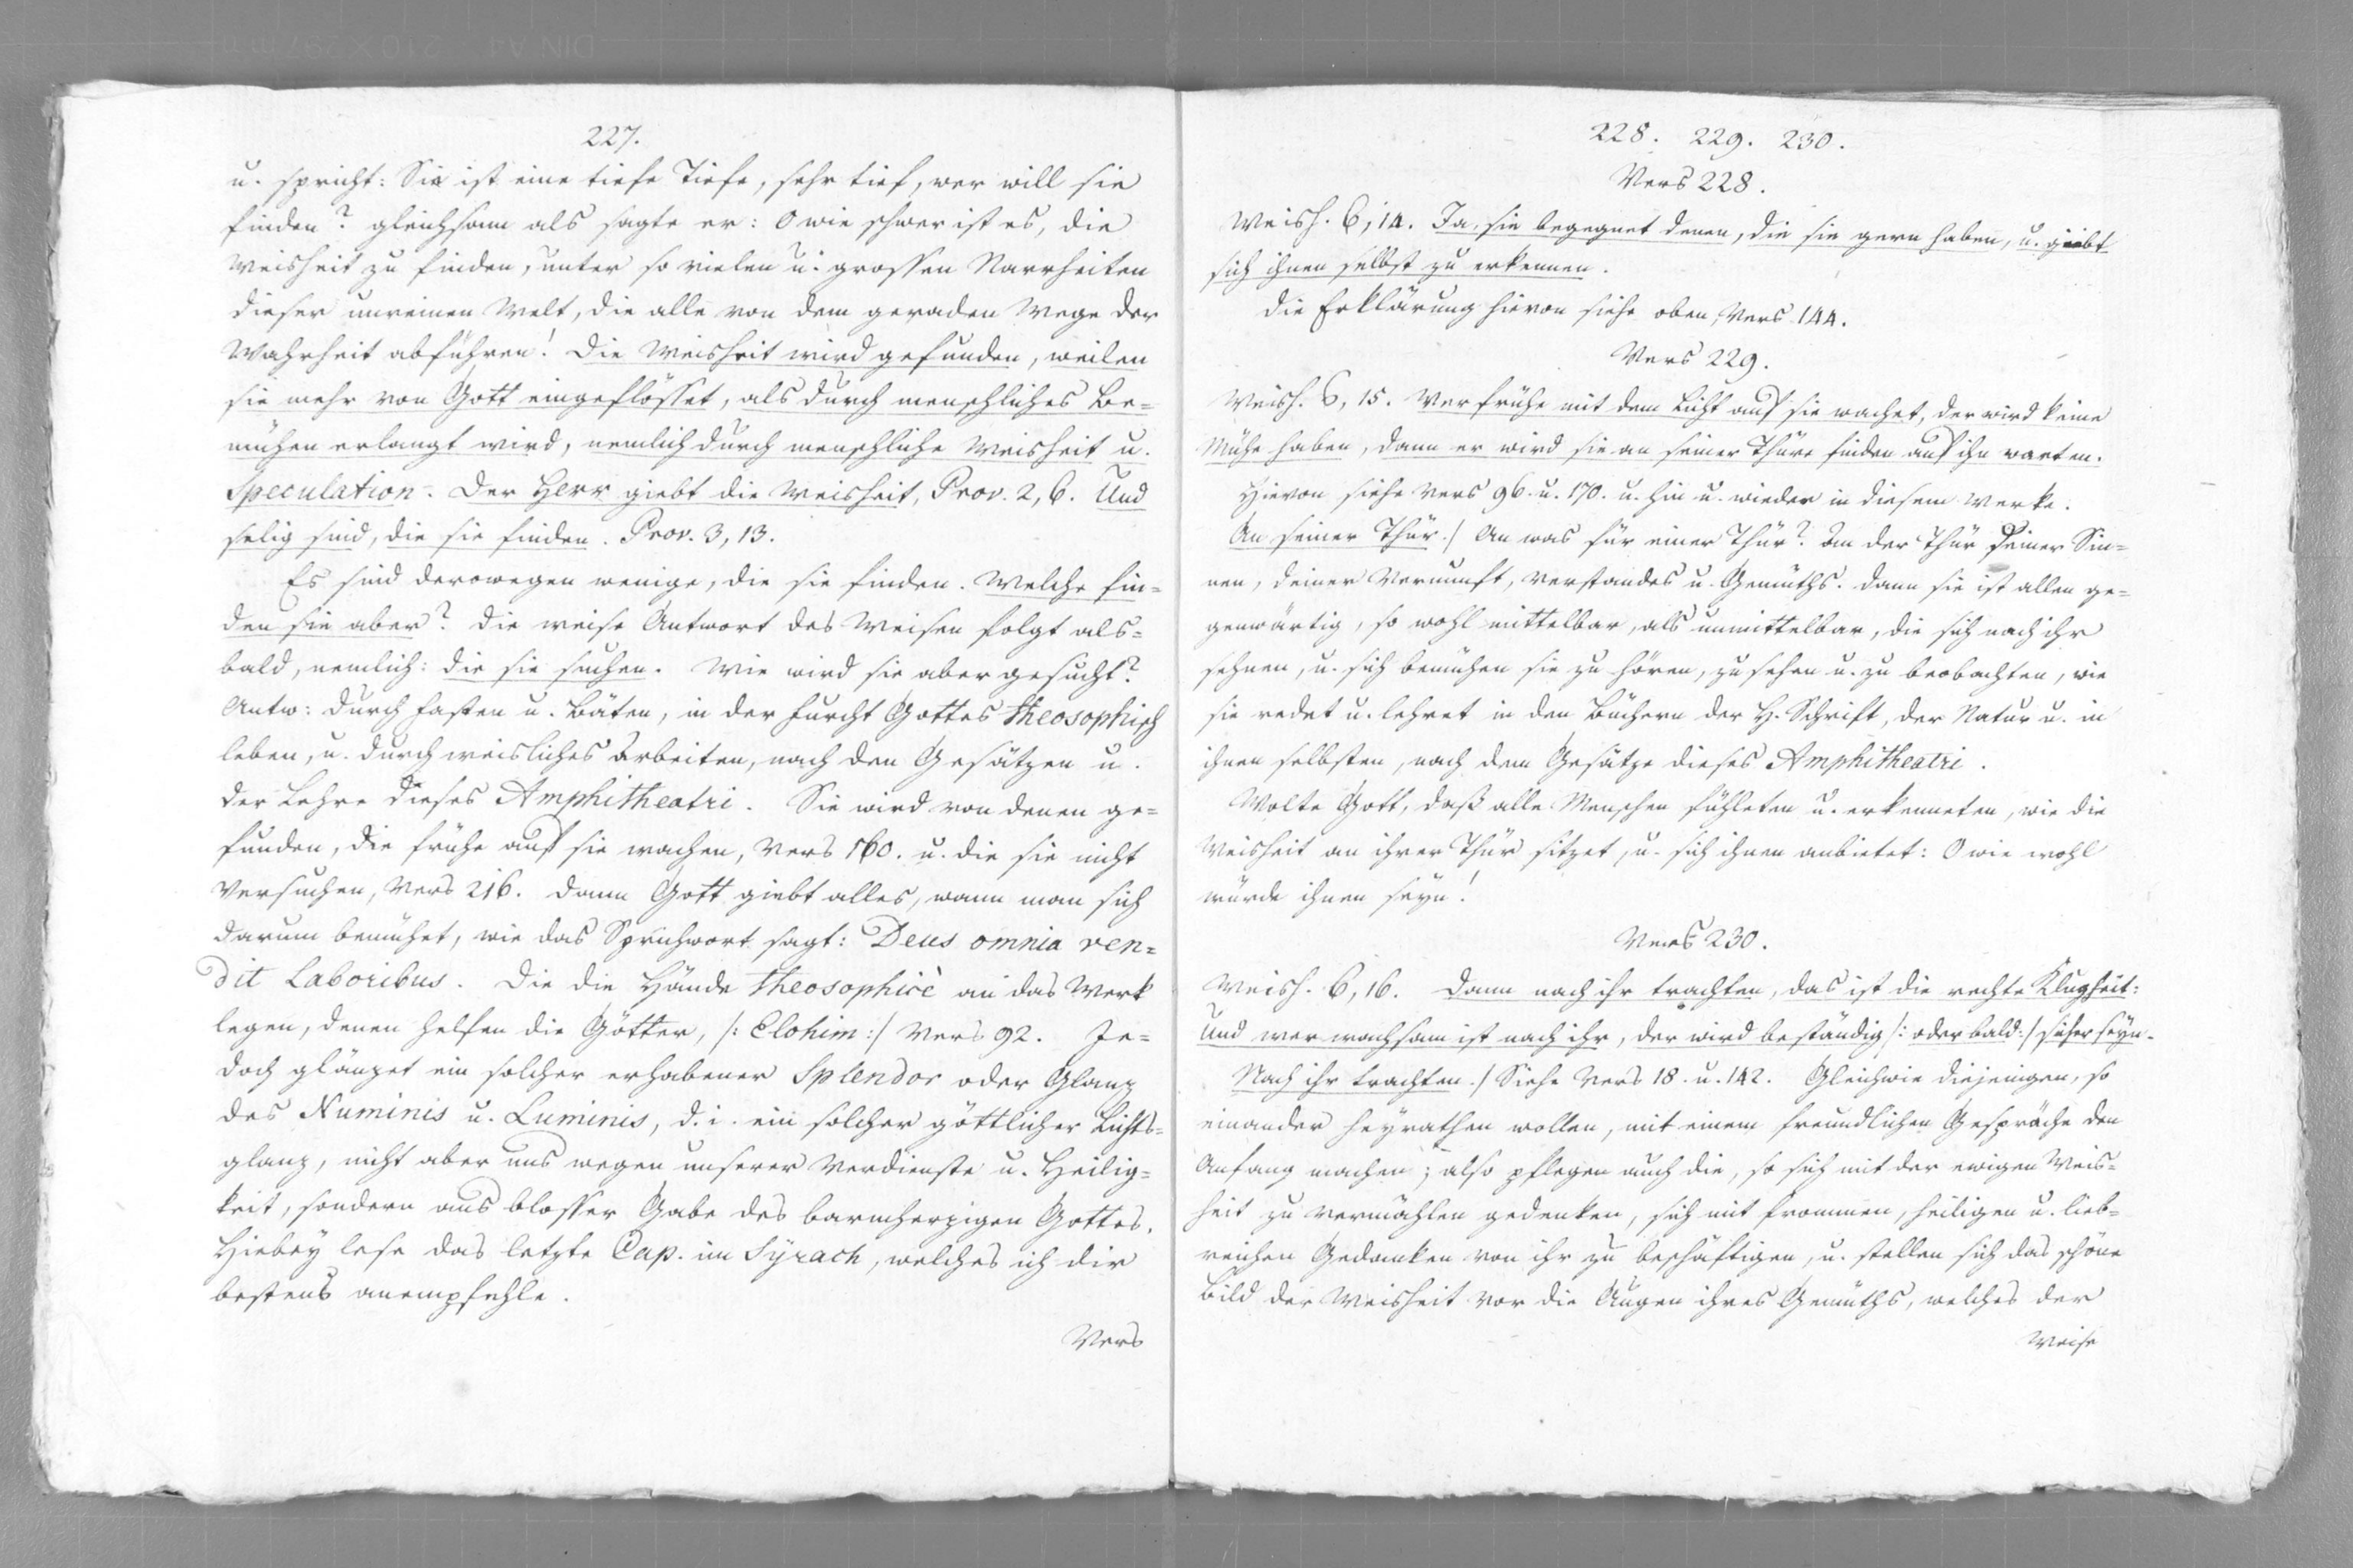 227.
u. spricht: Sie ist eine tiefe Tiefe, sehr tief, wer will sie
finden? gleichsam als sagte er: O wie schwer ist es, die
Weisheit zu finden, unter so vielen u. grossen Narrheiten
dieser unreinen Welt, die alle von dem geraden Wege der
Wahrheit abführen! Die Weisheit wird gefunden, weilen
sie mehr von Gott eingeflösset, als durch menschliches Be=
mühen erlangt wird, nemlich durch menschliche Weisheit u.
Speculation. Der Herr giebt die Weisheit, Prov. 2, 6. Und
selig sind, die sie finden. Prov. 3, 13.
Es sind derowegen wenige, die sie finden. Welche fin=
den sie aber? Die weise Antwort des Weisen folgt als=
bald, nemlich: die sie suchen. Wie wird sie aber gesucht?
Antw: durch Fasten u. Bäten, in der Furcht Gottes theosophisch
leben, u. durch weisliches arbeiten, nach den Gesätzen u.
der Lehre dieses Amphitheatri. Sie wird von denen ge=
funden, die frühe auf sie wachen, Vers 160. u. die sie nicht
versuchen, Vers 216. Dann Gott giebt alles, wann man sich
darum bemühet, wie das Sprichwort sagt: Deus omnia ven=
dit Laboribus. Die die Hände theosophicè an das Werk
legen, denen helfen die Götter, /: Elohim :/ Vers 92. Je=
doch glänzet ein solcher erhabener Splendor oder Glanz
des Numinis u. Luminis, d. i. ein solcher göttlicher Lichts=
glanz, nicht aber uns wegen unserer Verdienste u. Heilig=
keit, sondern aus blosser Gabe des barmherzigen Gottes.
Hiebey lese das letzte Cap. im Syrach, welches ich dir
bestens anempfehle.
Vers
228. 229. 230.
Vers 228.
Weish. 6, 14. Ja, sie begegnet denen, die sie gern haben, u. giebt
sich ihnen selbst zu erkennen.
Die Erklärung hievon siehe oben, Vers 144.
Vers 229.
Weish. 6, 15. Wer frühe mit dem Licht auf sie wachet, der wird keine
Mühe haben, dann er wird sie an seiner Thüre finden auf ihn warten.
Hievon siehe Vers 96. u. 170. u. hin u. wieder in diesem Werke.
An seiner Thür./ An was für einer Thür? An der Thür seiner Sin=
nen, deiner Vernunft, Verstandes u. Gemüths. Dann sie ist allen ge=
genwärtig, so wohl mittelbar, als unmittelbar, die sich nach ihr
sehnen, u. sich bemühen sie zu hören, zu sehen u. zu beobachten, wie
sie redet u. lehret in den Büchern der H. Schrift, der Natur u. in
ihnen selbsten, nach dem Gesätze dieses Amphitheatri.
Wolte Gott, daß alle Menschen fühleten u. erkenneten, wie die
Weisheit an ihrer Thür sitzet, u. sich ihnen anbietet: O wie wohl
würde ihnen seyn!
Vers 230.
Weish. 6, 16. Dann nach ihr trachten, das ist die rechte Klugheit:
Und wer wachsam ist nach ihr, der wird beständig /: oder bald :/ sicher seyn.
Nach ihr trachten./ Siehe Vers 18. u. 142. Gleichwie diejenigen, so
einander heyrathen wollen, mit einem freundlichen Gespräche den
Anfang machen; also pflegen auch die, so sich mit der ewigen Weis=
heit zu vermählen gedenken, sich mit frommen, heiligen u. lieb=
reichen Gedanken von ihr zu beschäftigen, u. stellen sich das schöne
Bild der Weisheit vor die Augen ihres Gemüths, welches der
Weise